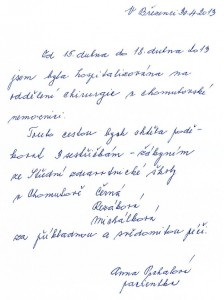 V Březenci 30.4.2013
Od 15. dubna do 18. dubna 2013
jsem byla hospitalizována na
oddělení chirurgie v chomutovské
nemocnici.
Touto cestou bych chtěla podě-
kovat 3 sestřičkám - žákyním
ze Střední zdravotnické školy
v Chomutově Černá
Rezková
Michálková
za příkladnou a svědomitou péči.
Anna
pacientka